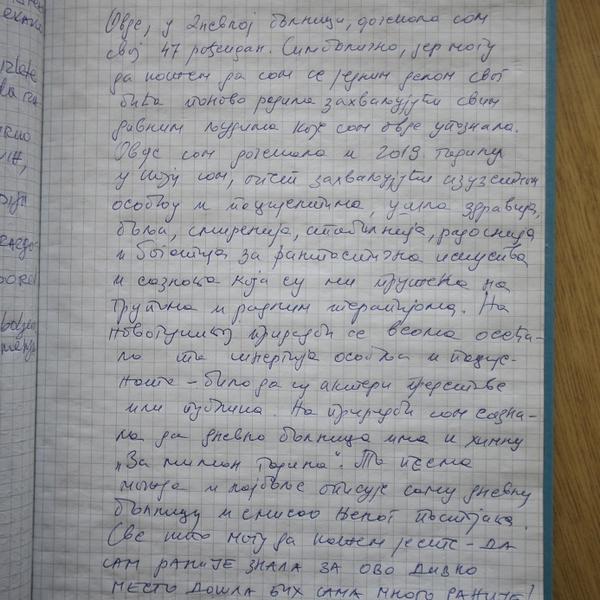 Овде, у дневној болници, дочекала сам
свој 47 рођендан. Симболично, јер могу
да кажем да сам се једним делом свог
бића поново родила захваљујући свим
дивним људима које сам овде упознала.
Овде сам дочекала и 2019. годину
у коју сам, опет захваљујући изузетном
особљу и пацијентима, ушла здравија,
боља, смиренија, стабилнија, радоснија
и богатија за фантастична искуства
и сазнања која су ми пружена на
групама и радним терапијама. На
новогодишњој приредби се веома осећа-
ла та енергија особља и пације-
ната – било да су актери представе
или публика. На приредби сам сазна-
ла да дневна болница има и химну
„За милион година“. Та песма
можда и најбоље описује саму дневну
болницу и смисао њеног постојања.
Све што могу да кажем јесте – ДА
САМ РАНИЈЕ ЗНАЛА ЗА ОВО ДИВНО
МЕСТО ДОШЛА БИХ САМА МНОГО РАНИЈЕ!